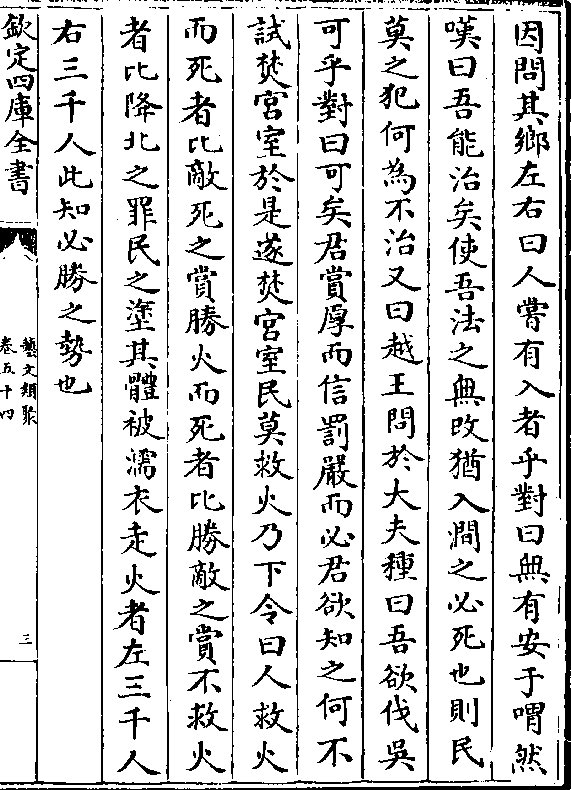 因問其鄉左右曰人嘗有入者乎對曰無有安于喟然
嘆曰吾能治矣使吾法之無改猶入澗之必死也則民
莫之犯何為不治又曰越王問於大夫種曰吾欲伐吳
可乎對曰可矣君賞厚而信罰嚴而必君欲知之何不
試焚宮室於是遂焚宮室民莫救火乃下令曰人救火
而死者比敵死之賞勝火而死者比勝敵之賞不救火
者比降北之罪民之塗其體被濡衣走火者左三千人
右三千人此知必勝之勢也
欽定四庫全書
藝文類聚
卷五十四
三